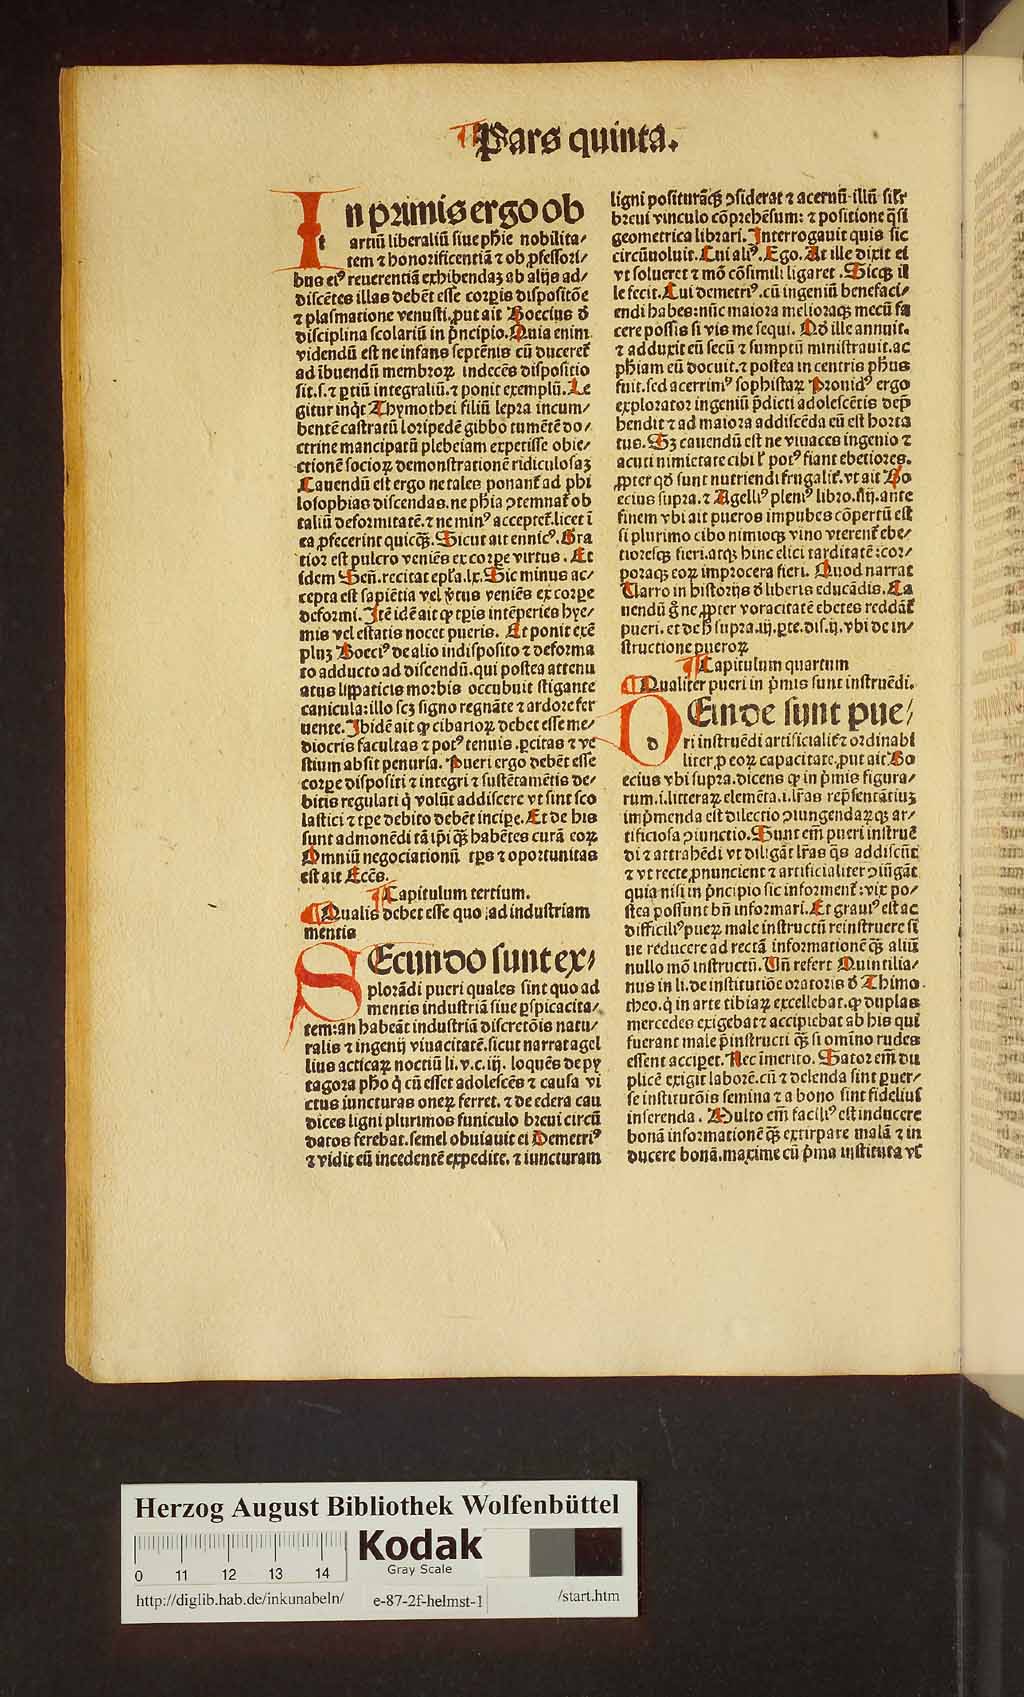 Pars quinta.
In primis ergo ob
artiū liberaliū siue phie nobilita/
tem ⁊ honorificentiā ⁊ ob ꝓfessori/
bus eiꝰ reuerentiā exhibendaꝫ ab alijs ad/
discētes illas debēt esse corꝑis dispositōe
⁊ plasmatione venusti. ꝓut ait Boecius ď
disciplina scolariū in pͥncipio. Quia enim
videndū est ne infans septēnis cū duceret̄
ad ībuendū membroꝝ indecēs dispositio
sit. s. ⁊ ꝑtiū integraliū. ⁊ ponit exemplū. Le
gitur inqͥt Thymothei filiū lepra incum/
bentē castratū loripedē gibbo tumētē do/
ctrine mancipatū plebeiam expetisse obie/
ctionē socioꝝ demonstrationē ridiculosaꝫ
Cauendū est ergo ne tales ponant̄ ad phi
losophias discendas. ne phīa ↄtemnat̄ ob
taliū deformitatē. ⁊ ne minꝰ acceptet̄. licet ī
ea ꝓfecerint quicꝙ̄. Sicut ait ennicꝰ. Gra
tior est pulcro veniēs ex corꝑe virtus. Et
idem Señ. recitat epl̄a. lx. Sic minus ac/
cepta est sapiētia vel v̓tus veniēs ex corꝑe
deformi. Itē idē ait ꝙ tꝑis intēperies hye/
mis vel estatis nocet pueris. Et ponit exē
pluꝫ Boeciꝰ de alio indisposito ⁊ deforma
to adducto ad discendū. qui postea attenu
atus lippaticis morbis occubuit stigante
canicula: illo scꝫ signo regnāte ⁊ ardore fer
uente. Ibidē ait ꝙ cibarioꝝ debet esse me/
diocris facultas ⁊ potꝰ tenuis. ꝑcitas ⁊ ve
stium absit penuria. Pueri ergo debēt esse
corꝑe dispositi ⁊ integri ⁊ sustētamētis de/
bitis regulati qͥ volūt addiscere vt sint sco
lastici ⁊ tꝑe debito debēt incipe. Et de his
sunt admonēdi tā ipi ꝙ̄ habētes curā eoꝝ
Omniū negociationū tꝑs ⁊ oportunitas
est ait Eccēs.
Capitulum tertium.
Qualis debet esse quo ad industriam
mentis
SEcundo sunt ex/
plorādi pueri quales sint quo ad
mentis industriā siue ꝑspicacita/
tem: an habeāt industriā discretōis natu/
ralis ⁊ ingenij viuacitatē. sicut narrat agel
lius acticaꝝ noctiū li. v. c. iij. loquēs de py
tagora pho qͥ cū esset adolescēs ⁊ causa vi
ctus iuncturas oneꝝ ferret. ⁊ de edera cau
dices ligni plurimos funiculo breui circū
datos ferebat. semel obuiauit ei Demetriꝰ
⁊ vidit eū incedentē expedite. ⁊ iuncturam
ligni posituraꝙ̄ ↄsiderat ⁊ aceruū illū sil̄r
breui vinculo cōprehēsum: ⁊ positione q̄si
geometrica librari. Interrogauit quis sic
circūuoluit. Cui aliꝰ. Ego. At ille dixit ei
vt solueret ⁊ mō cōsimili ligaret. Sicqꝫ il
le fecit. Cui demetriꝰ. cū ingeniū benefaci/
endi habes: nūc maiora melioraqꝫ mecū fa
cere possis si vis me sequi. Qď ille annuit.
⁊ adduxit eū secū ⁊ sumptū ministrauit. ac
phiam eū docuit. ⁊ postea in centris phūs
fuit. sed acerrimꝰ sophistaꝝ Pronidꝰ ergo
explorator ingeniū p̄dicti adolescētis dep̄
hendit ⁊ ad maiora addiscēda eū est horta
tus. Sꝫ cauendū est ne viuaces ingenio ⁊
acuti nimietate cibi l̓ potꝰ fiant ebetiores.
ꝓpter qď sunt nutriendi frugalit̄. vt ait Bo
ecius supra. ⁊ Agelliꝰ pleniꝰ libro. iiij. ante
finem vbi ait pueros impubes cōpertū est
si plurimo cibo nimioqꝫ vino vterent̄ ebe/
tioresqꝫ fieri. atqꝫ hinc elici tarditatē: cor/
poraqꝫ eoꝝ improcera fieri. Quod narrat
Varro in historijs ď liberis educādis. Ca
uendū g̊ ne ꝓpter voracitatē ebetes reddāt̄
pueri. et de h̄ supra. iij. ꝑte. dis. ij. vbi de in/
structione pueroꝝ
Capitulum quartum
Qualiter pueri in pͥmis sunt instruēdi.
DEinde sunt pue/
ri instruēdi artificialit̄ ⁊ ordinabi
liter. ꝓ eoꝝ capacitate. ꝓut ait Bo
ecius vbi supra. dicens ꝙ in pͥmis figura/
rum. i. litteraꝝ elemēta. i. lr̄as rep̄sentātiuꝫ
impͥmenda est dilectio ↄiungendaꝝqꝫ ar/
tificiosa ↄiunctio. Sunt em̄ pueri instruē
di ⁊ attrahēdi vt diligāt lr̄as q̄s addiscūt
⁊ vt recte ꝓnuncient ⁊ artificialiter ↄiūgāt
quia nisi in pͥncipio sic informent̄: vix po/
stea possunt bn̄ informari. Et grauiꝰ est ac
difficiliꝰ pueꝝ male instructū reinstruere si
ue reducere ad rectā informationē ꝙ̄ aliū
nullo mō instructū. Vn̄ refert Quintilia/
nus in li. de institutiōe oratoris ď Thimo
theo. qͥ in arte tibiaꝝ excellebat. ꝙ duplas
mercedes exigebat ⁊ accipiebat ab his qui
fuerant male p̄instructi ꝙ̄ si omīno rudes
essent acciꝑet. Nec īmerito. Sator em̄ du
plicē exigit laborē. cū ⁊ delenda sint ꝑuer/
se institutōis semina ⁊ a bono sint fidelius
inserenda. Multo em̄ faciliꝰ est inducere
bonā informationē ꝙ̄ extirpare malā ⁊ in
ducere bonā. maxime cū pͥma instituta vt
Herzog August Bibliothek Wolfenbüttel
Kodak
Gray Scale
0 11 12 13 14
http://diglib.hab.de/inkunabeln/ e-87-2f-helmst-1 /start.htm